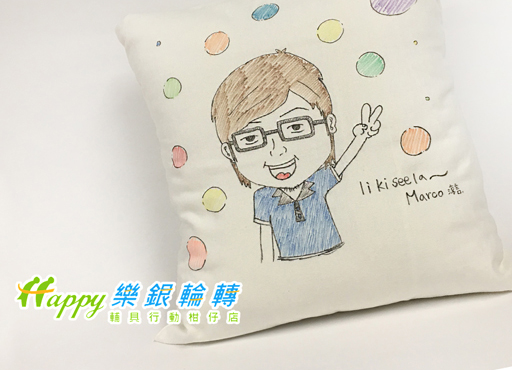 li kiseela~
Marco
Happy 樂銀輪轉
輔具行動柑仔店